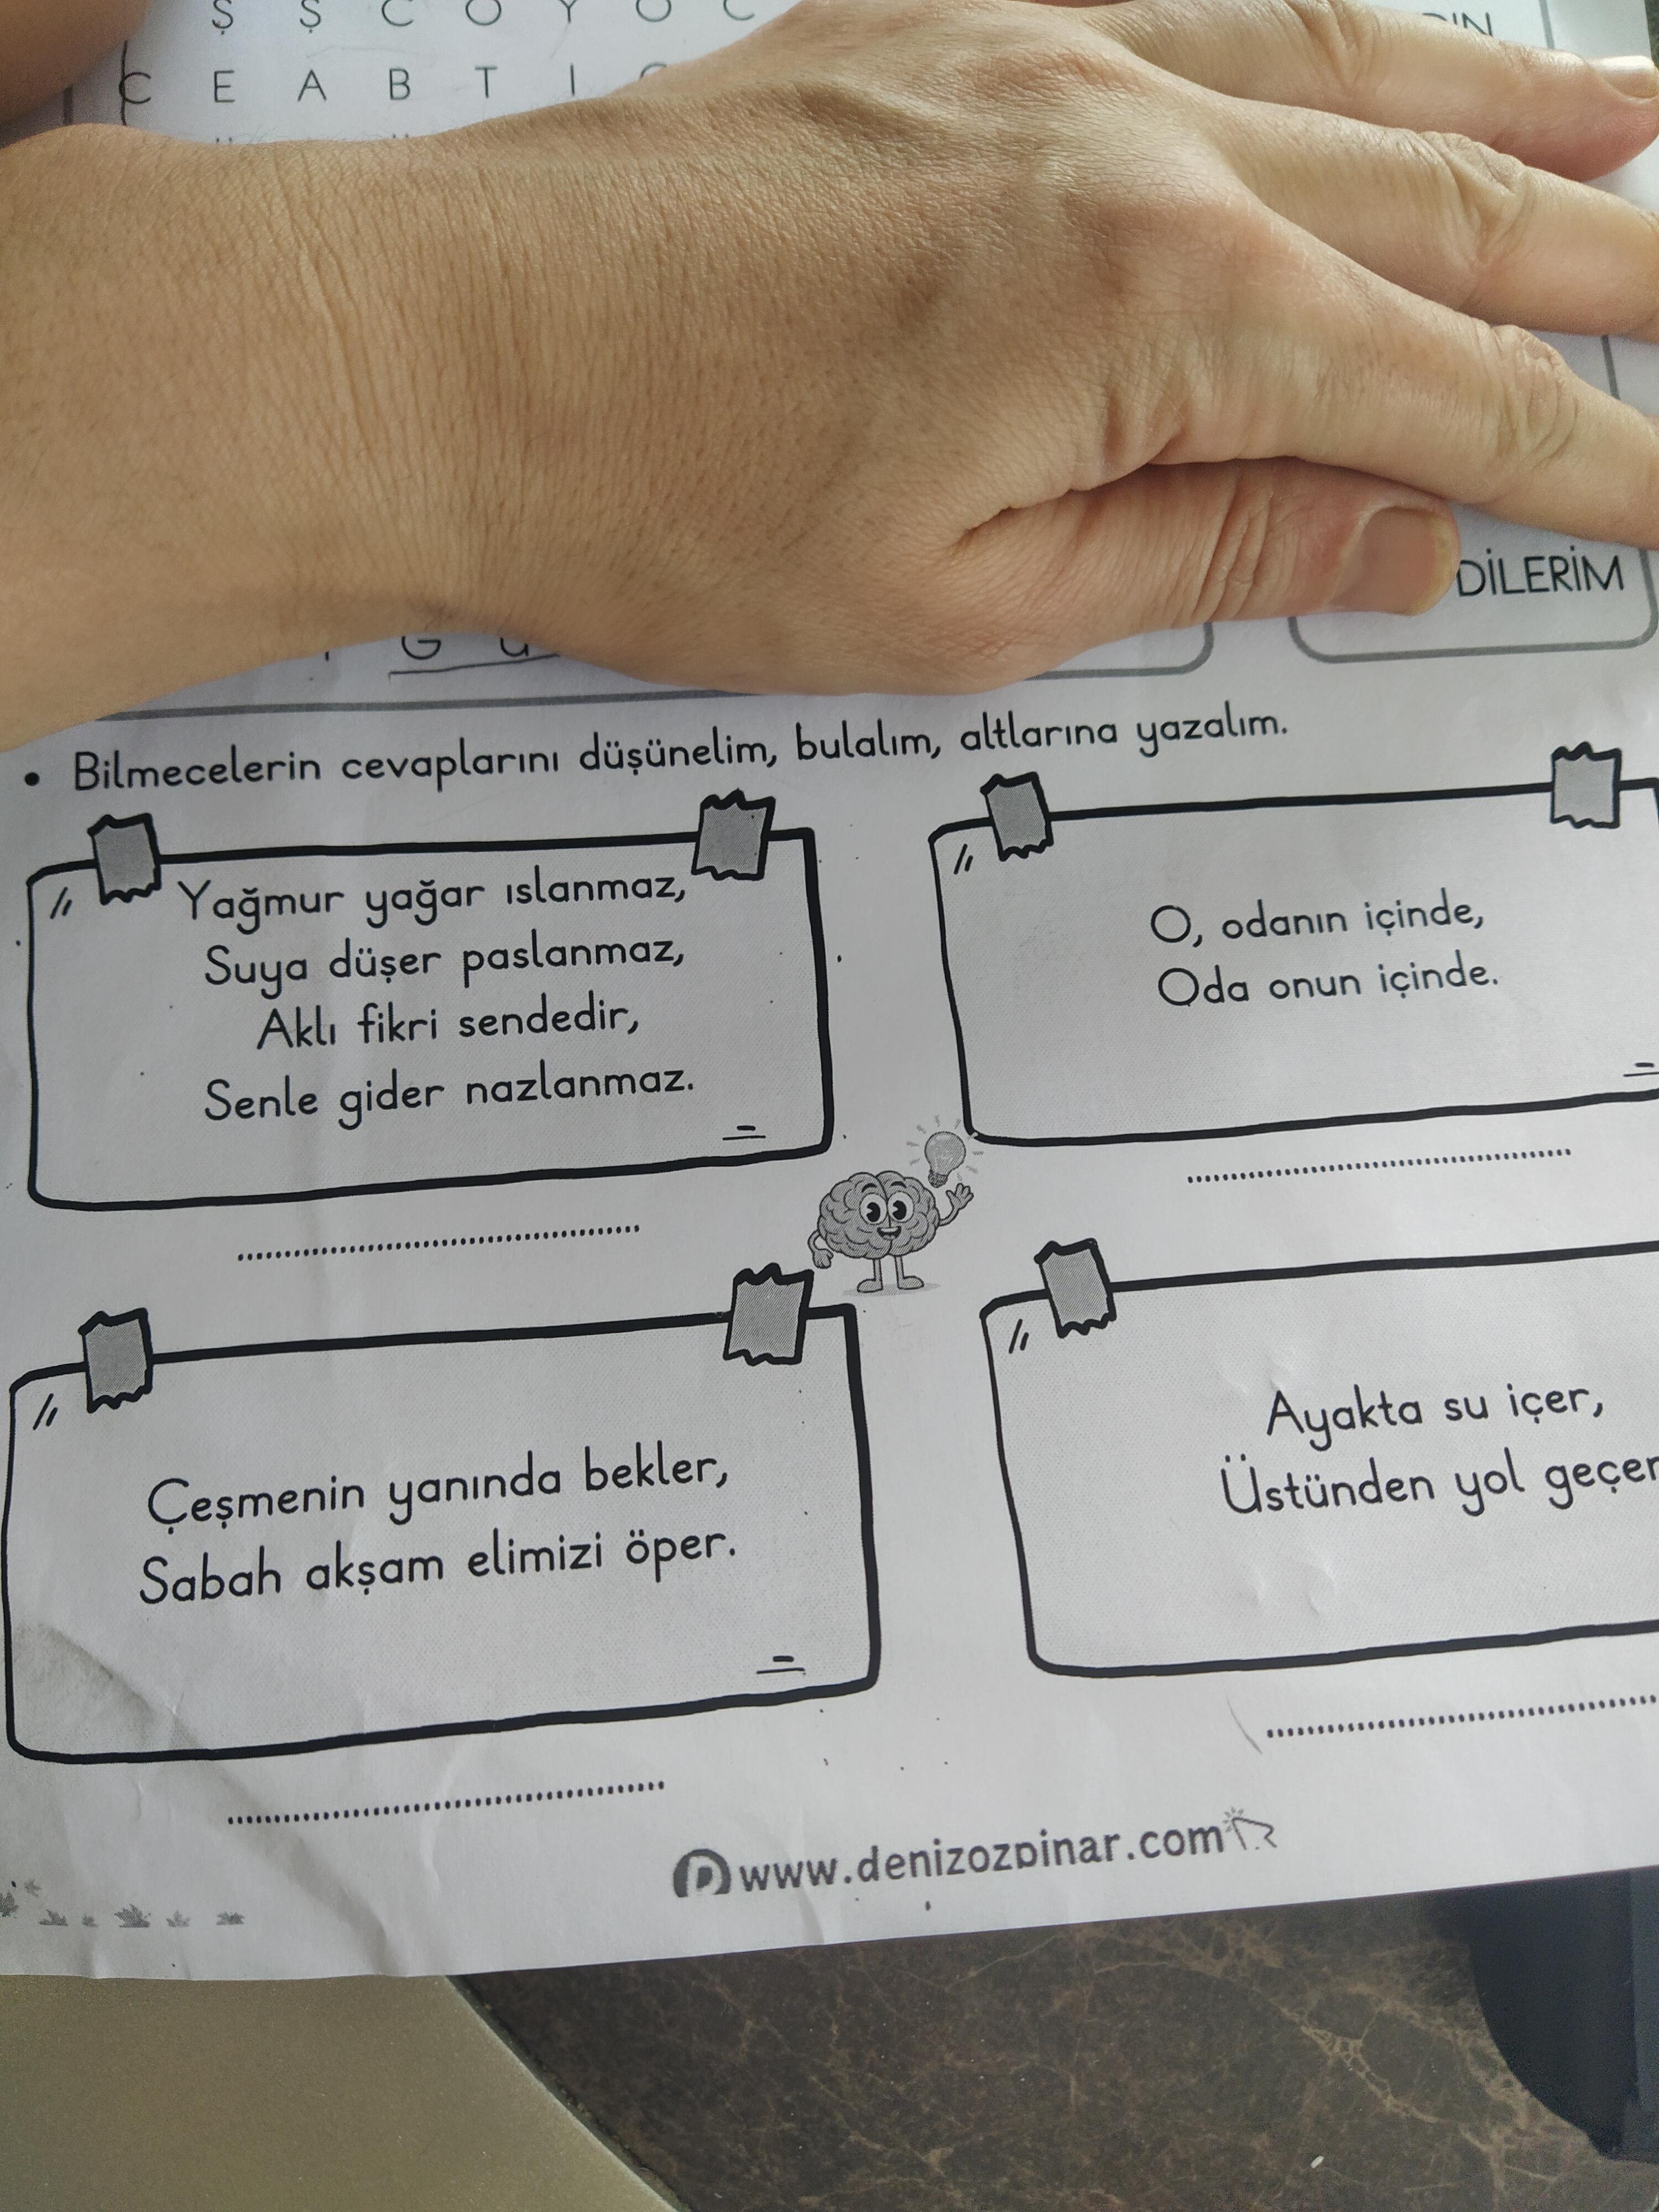 Ş Ş C O Y O C
C E A B T I
DİLERİM
G u
• Bilmecelerin cevaplarını düşünelim, bulalım, altlarına yazalım.
Yağmur yağar ıslanmaz,
Suya düşer paslanmaz,
Aklı fikri sendedir,
Senle gider nazlanmaz.
O, odanın içinde,
Oda onun içinde.
Çeşmenin yanında bekler,
Sabah akşam elimizi öper.
Ayakta su içer,
Üstünden yol geçer
www.denizozpinar.com